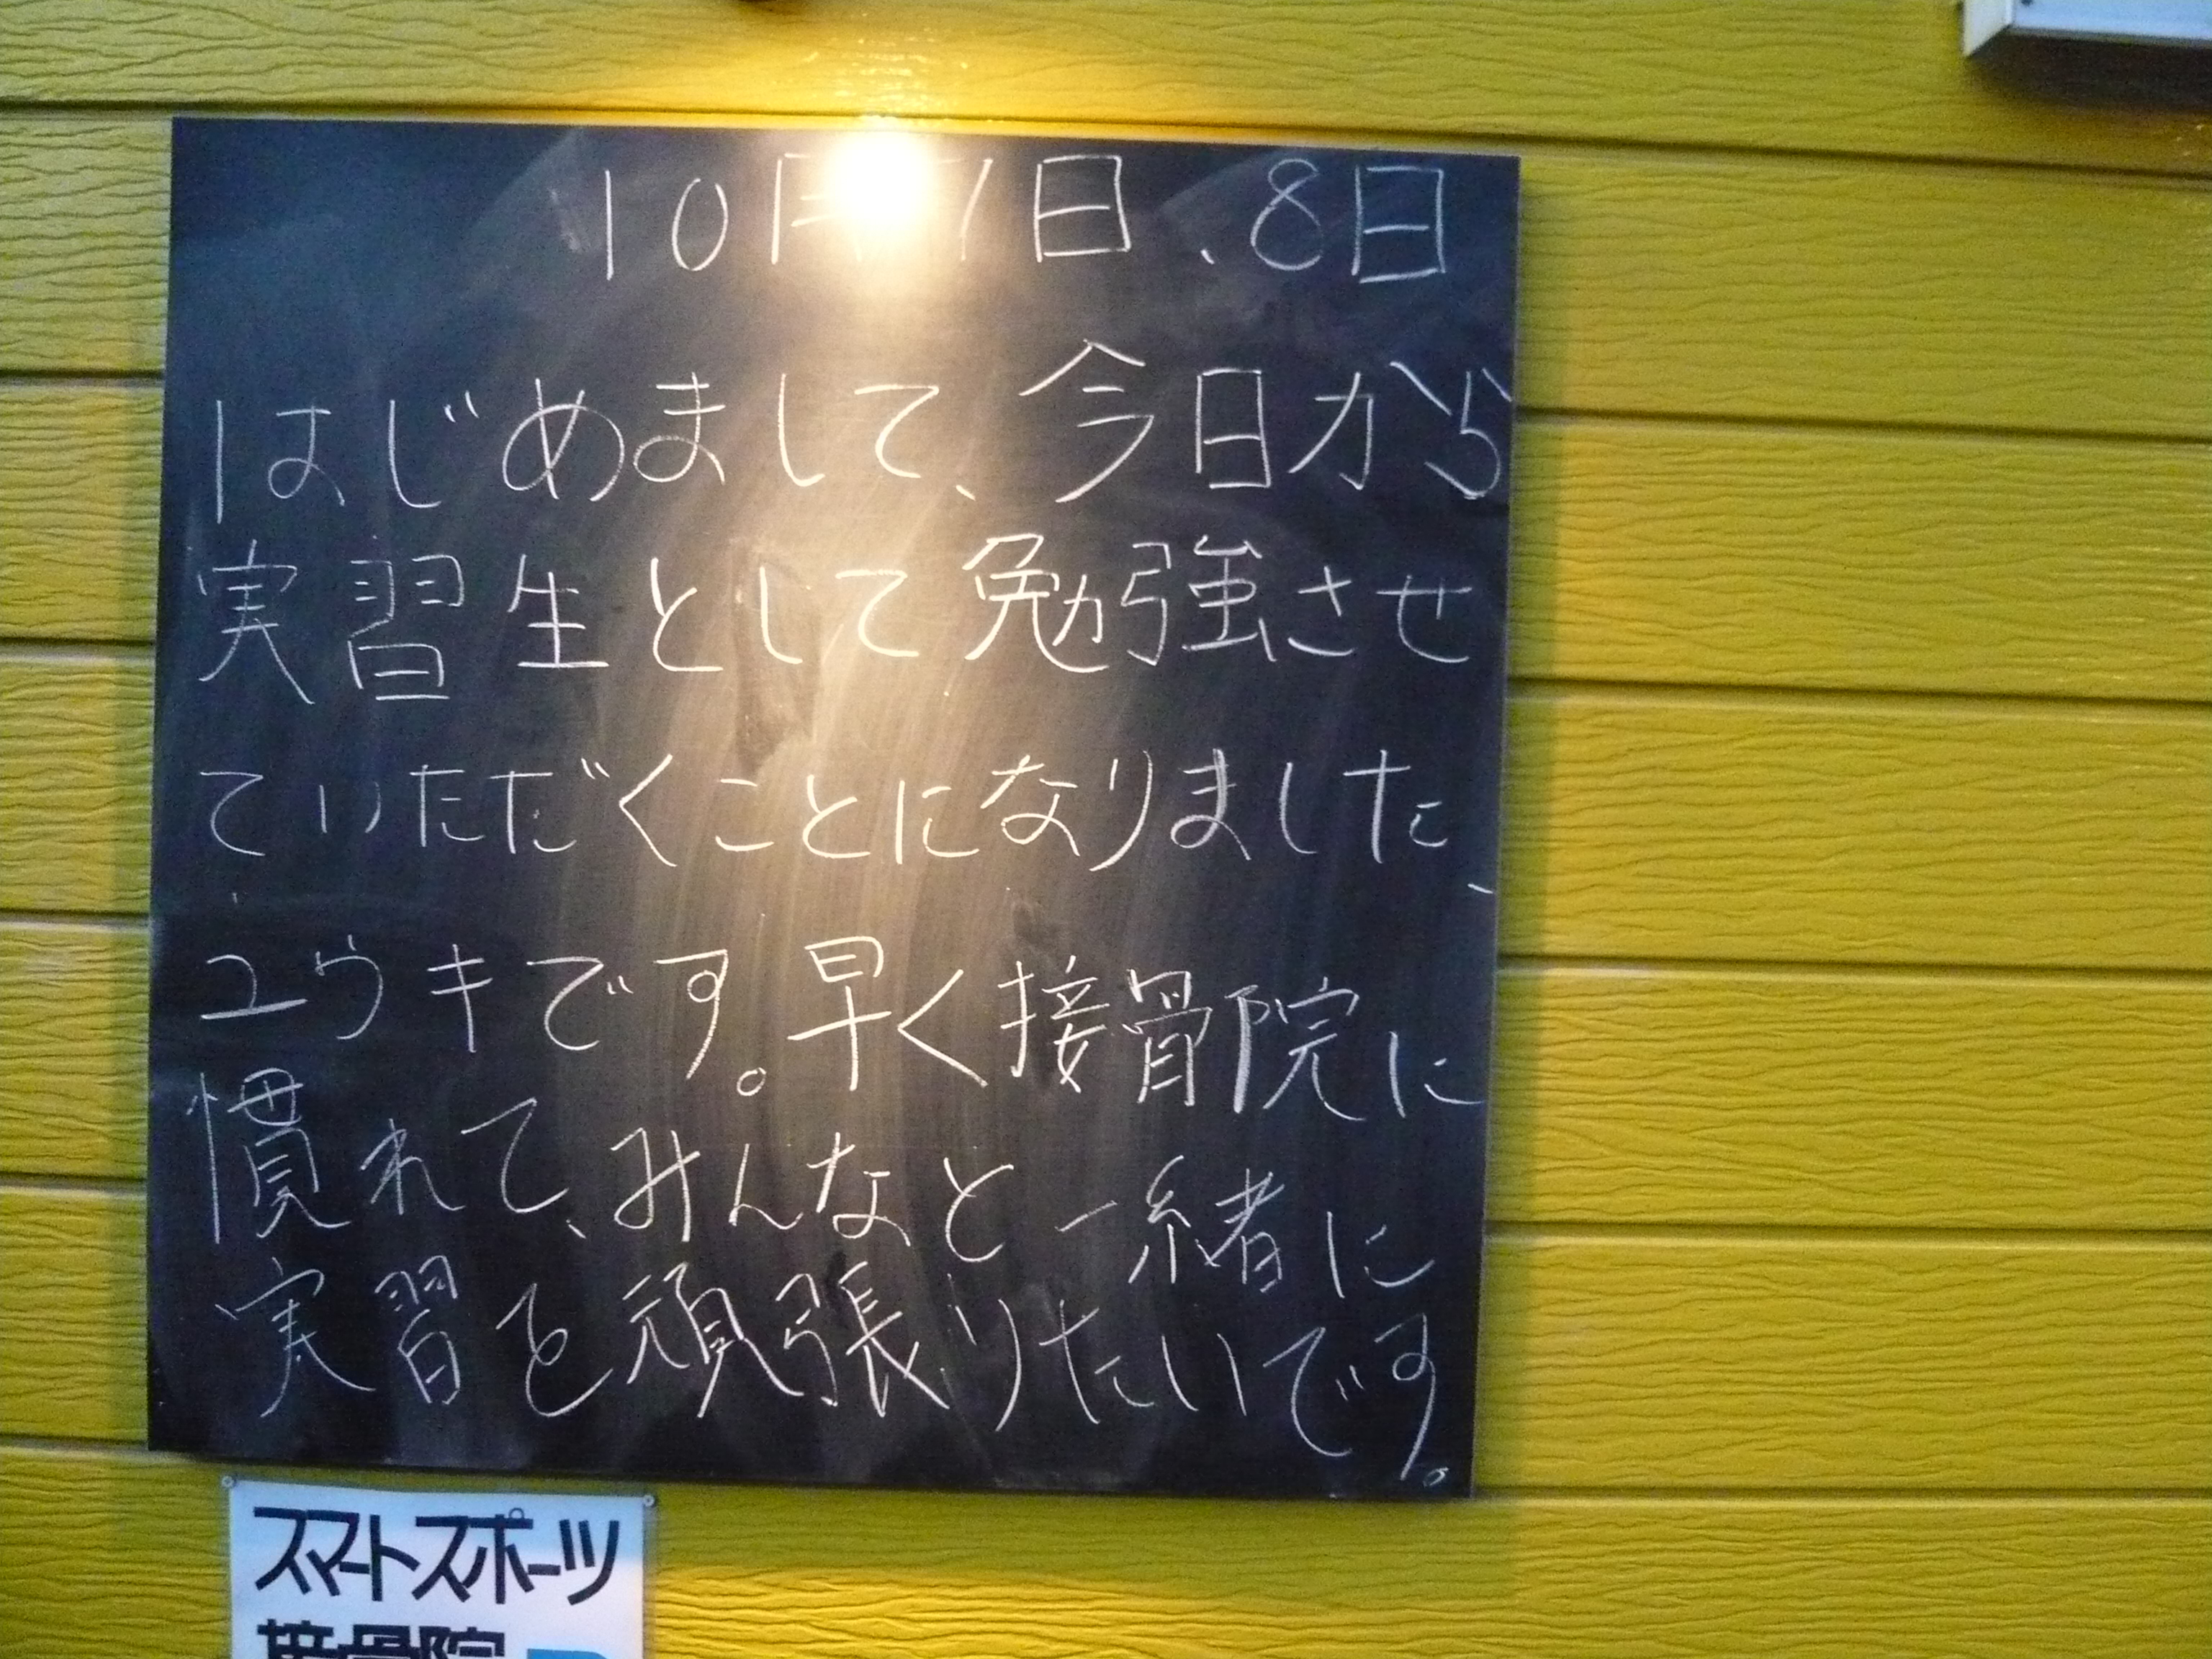 10月7日、8日
はじめまして、今日から
実習生として勉強させ
ていただくことになりました、
ユウキです。早く接骨院に
慣れて、みんなと一緒に
実習を頑張りたいです。
スマートスポーツ
接骨院